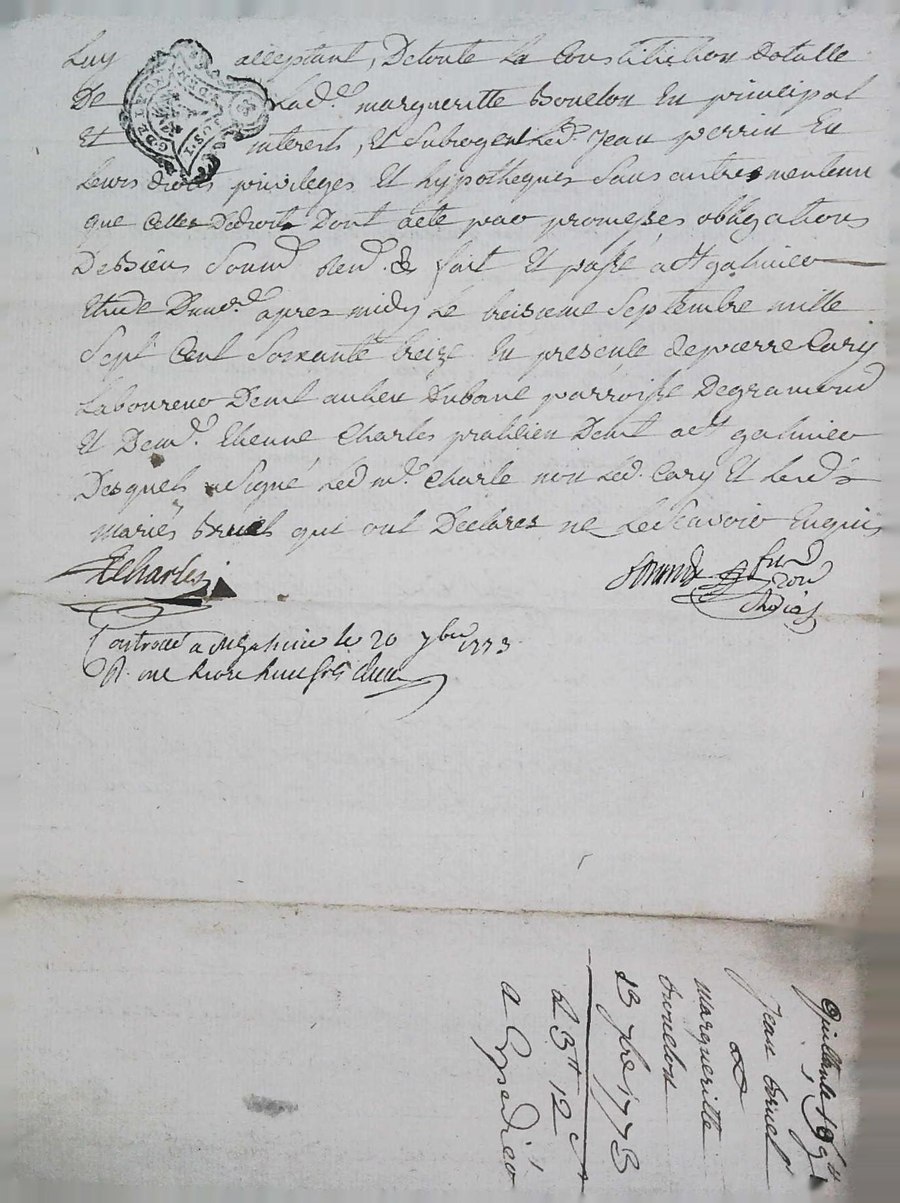 Luy acceptant, De toute La Constitution dotalle
De Lad.e margueritte Bouelon En principal
Et interets, Et Subrogent Led. Jean perrin En
Leurs droits privileges Et hypotheques Sans autre mentenu
que Celles Dedroit Dont acte pao promesses obligations
De Biens Soum.d Ren.d & fait Et passé a St galmieo
Etude Dund.e apres midy Le treiseme Septembre mille
Sept Cent Soixante treize En presence de pierre Cary
Laboureuo Dem.t au lieu dubane parroisse Degramond
Et De m.e Etienne Charles praticien Dem.t a St galmieo
Desquels a Signé Led m.e Charle non Led. Cary Et Lesd.s
mariés bruel qui ont Declares ne Le Scavoir Enquis
ECharles
Controllé a St Galmier le 20 7bre 1773
R. une livre huit sols
Quittance
Jean bruel
&
margueritte
bouelon
13 7bre 1773
2 3tt 12
a Expedieo